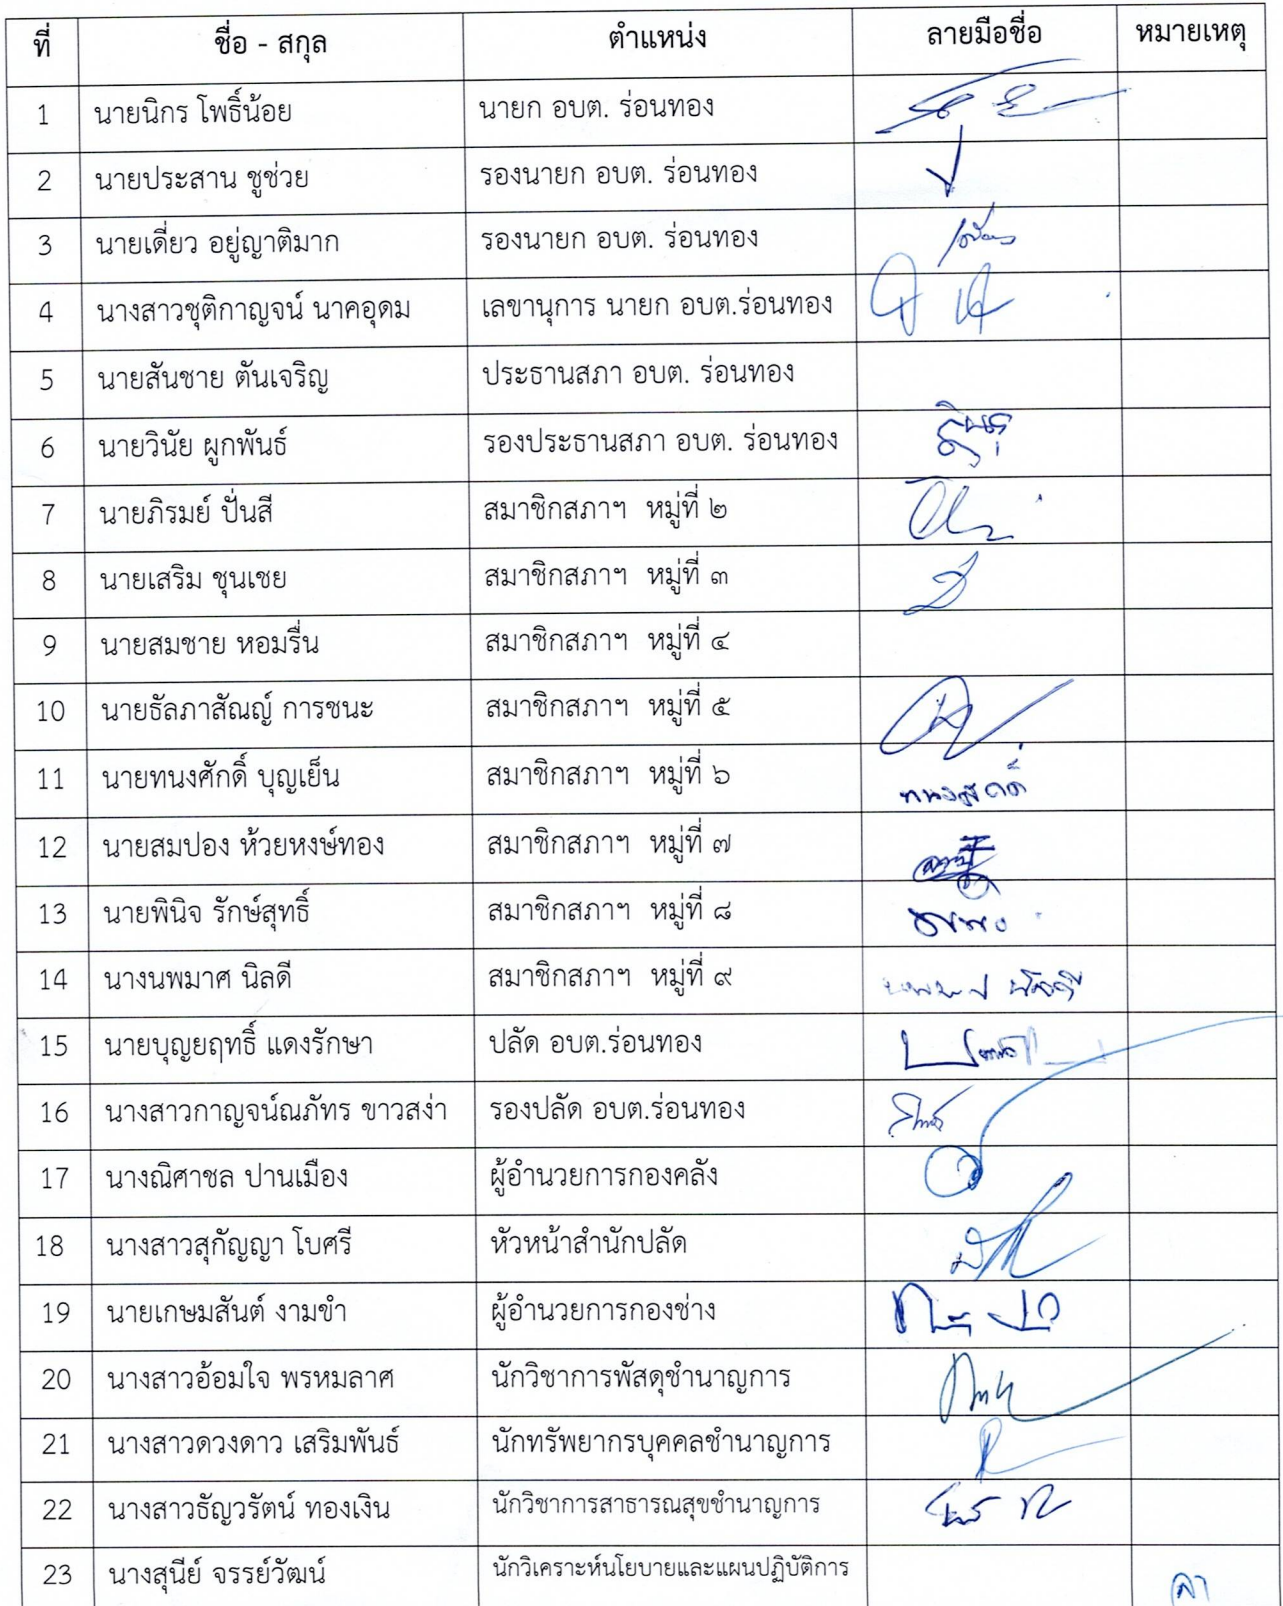 ที่ ชื่อ - สกุล ตำแหน่ง ลายมือชื่อ หมายเหตุ
1 นายนิกร โพธิ์น้อย นายก อบต. ร่อนทอง
2 นายประสาน ชูช่วย รองนายก อบต. ร่อนทอง
3 นายเดี่ยว อยู่ญาติมาก รองนายก อบต. ร่อนทอง
4 นางสาวชุติกาญจน์ นาคอุดม เลขานุการ นายก อบต.ร่อนทอง
5 นายสันชาย ตันเจริญ ประธานสภา อบต. ร่อนทอง
6 นายวินัย ผูกพันธ์ รองประธานสภา อบต. ร่อนทอง
7 นายภิรมย์ ปั่นสี สมาชิกสภาฯ หมู่ที่ ๒
8 นายเสริม ชุนเชย สมาชิกสภาฯ หมู่ที่ ๓
9 นายสมชาย หอมรื่น สมาชิกสภาฯ หมู่ที่ ๔
10 นายธัลภาสัณญ์ การชนะ สมาชิกสภาฯ หมู่ที่ ๕
11 นายทนงศักดิ์ บุญเย็น สมาชิกสภาฯ หมู่ที่ ๖ ทนงศักดิ์
12 นายสมปอง ห้วยหงษ์ทอง สมาชิกสภาฯ หมู่ที่ ๗
13 นายพินิจ รักษ์สุทธิ์ สมาชิกสภาฯ หมู่ที่ ๘
14 นางนพมาศ นิลดี สมาชิกสภาฯ หมู่ที่ ๙ นพมาศ นิลดี
15 นายบุญยฤทธิ์ แดงรักษา ปลัด อบต.ร่อนทอง
16 นางสาวกาญจน์ณภัทร ขาวสง่า รองปลัด อบต.ร่อนทอง
17 นางณิศาชล ปานเมือง ผู้อำนวยการกองคลัง
18 นางสาวสุกัญญา โบศรี หัวหน้าสำนักปลัด
19 นายเกษมสันต์ งามขำ ผู้อำนวยการกองช่าง
20 นางสาวอ้อมใจ พรหมลาศ นักวิชาการพัสดุชำนาญการ
21 นางสาวดวงดาว เสริมพันธ์ นักทรัพยากรบุคคลชำนาญการ
22 นางสาวธัญวรัตน์ ทองเงิน นักวิชาการสาธารณสุขชำนาญการ
23 นางสุนีย์ จรรย์วัฒน์ นักวิเคราะห์นโยบายและแผนปฏิบัติการ ลา